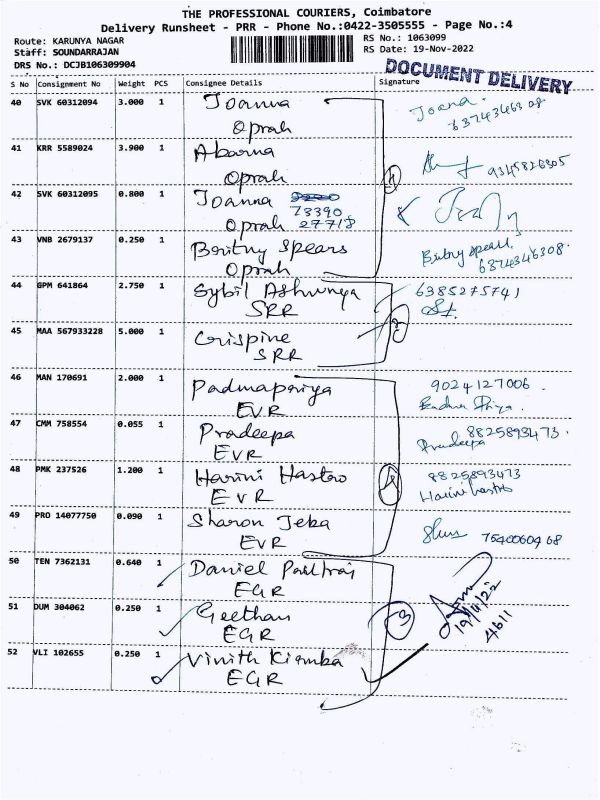 THE PROFESSIONAL COURIERS, Coimbatore
Delivery Runsheet - PRR - Phone No.:0422-3505555 - Page No.:4
Route: KARUNYA NAGAR
RS No.: 1063099
Staff: SOUNDARRAJAN
RS Date: 19-Nov-2022
DRS No.: DCJB106309904
DOCUMENT DELIVERY
S No Consignment No Weight PCS Consignee Details Signature
40 SVK 60312094 3.000 1 Joanna Joana.
Oprah 6374346308
41 KRR 5589024 3.900 1 Abarna 9345826305
Oprah
42 SVK 60312095 0.800 1 Joanna 73390
Oprah 27718
43 VNB 2679137 0.250 1 Britny Spears Britny spears.
Oprah 6374346308.
44 GPM 641864 2.750 1 Sybil Ashwinya 6385275741
SRR
45 MAA 567933228 5.000 1 Crispine
SRR
46 MAN 170691 2.000 1 Padmapriya 9024127006.
EVR Padma Priya.
47 CMM 758554 0.055 1 Pradeepa 8825893473.
EVR Pradeepa
48 PMK 237526 1.200 1 Harini Hastro 8825893473
EVR Harini hastro
49 PRO 14077750 0.090 1 Sharon Jeba 7540060468
EVR
50 TEN 7362131 0.640 1 Daniel Paulraj
EGR
51 DUM 304062 0.250 1 Geethan 19/11/22
EGR 4611
52 VLI 102655 0.250 1 Vinith Kiamba
EGR